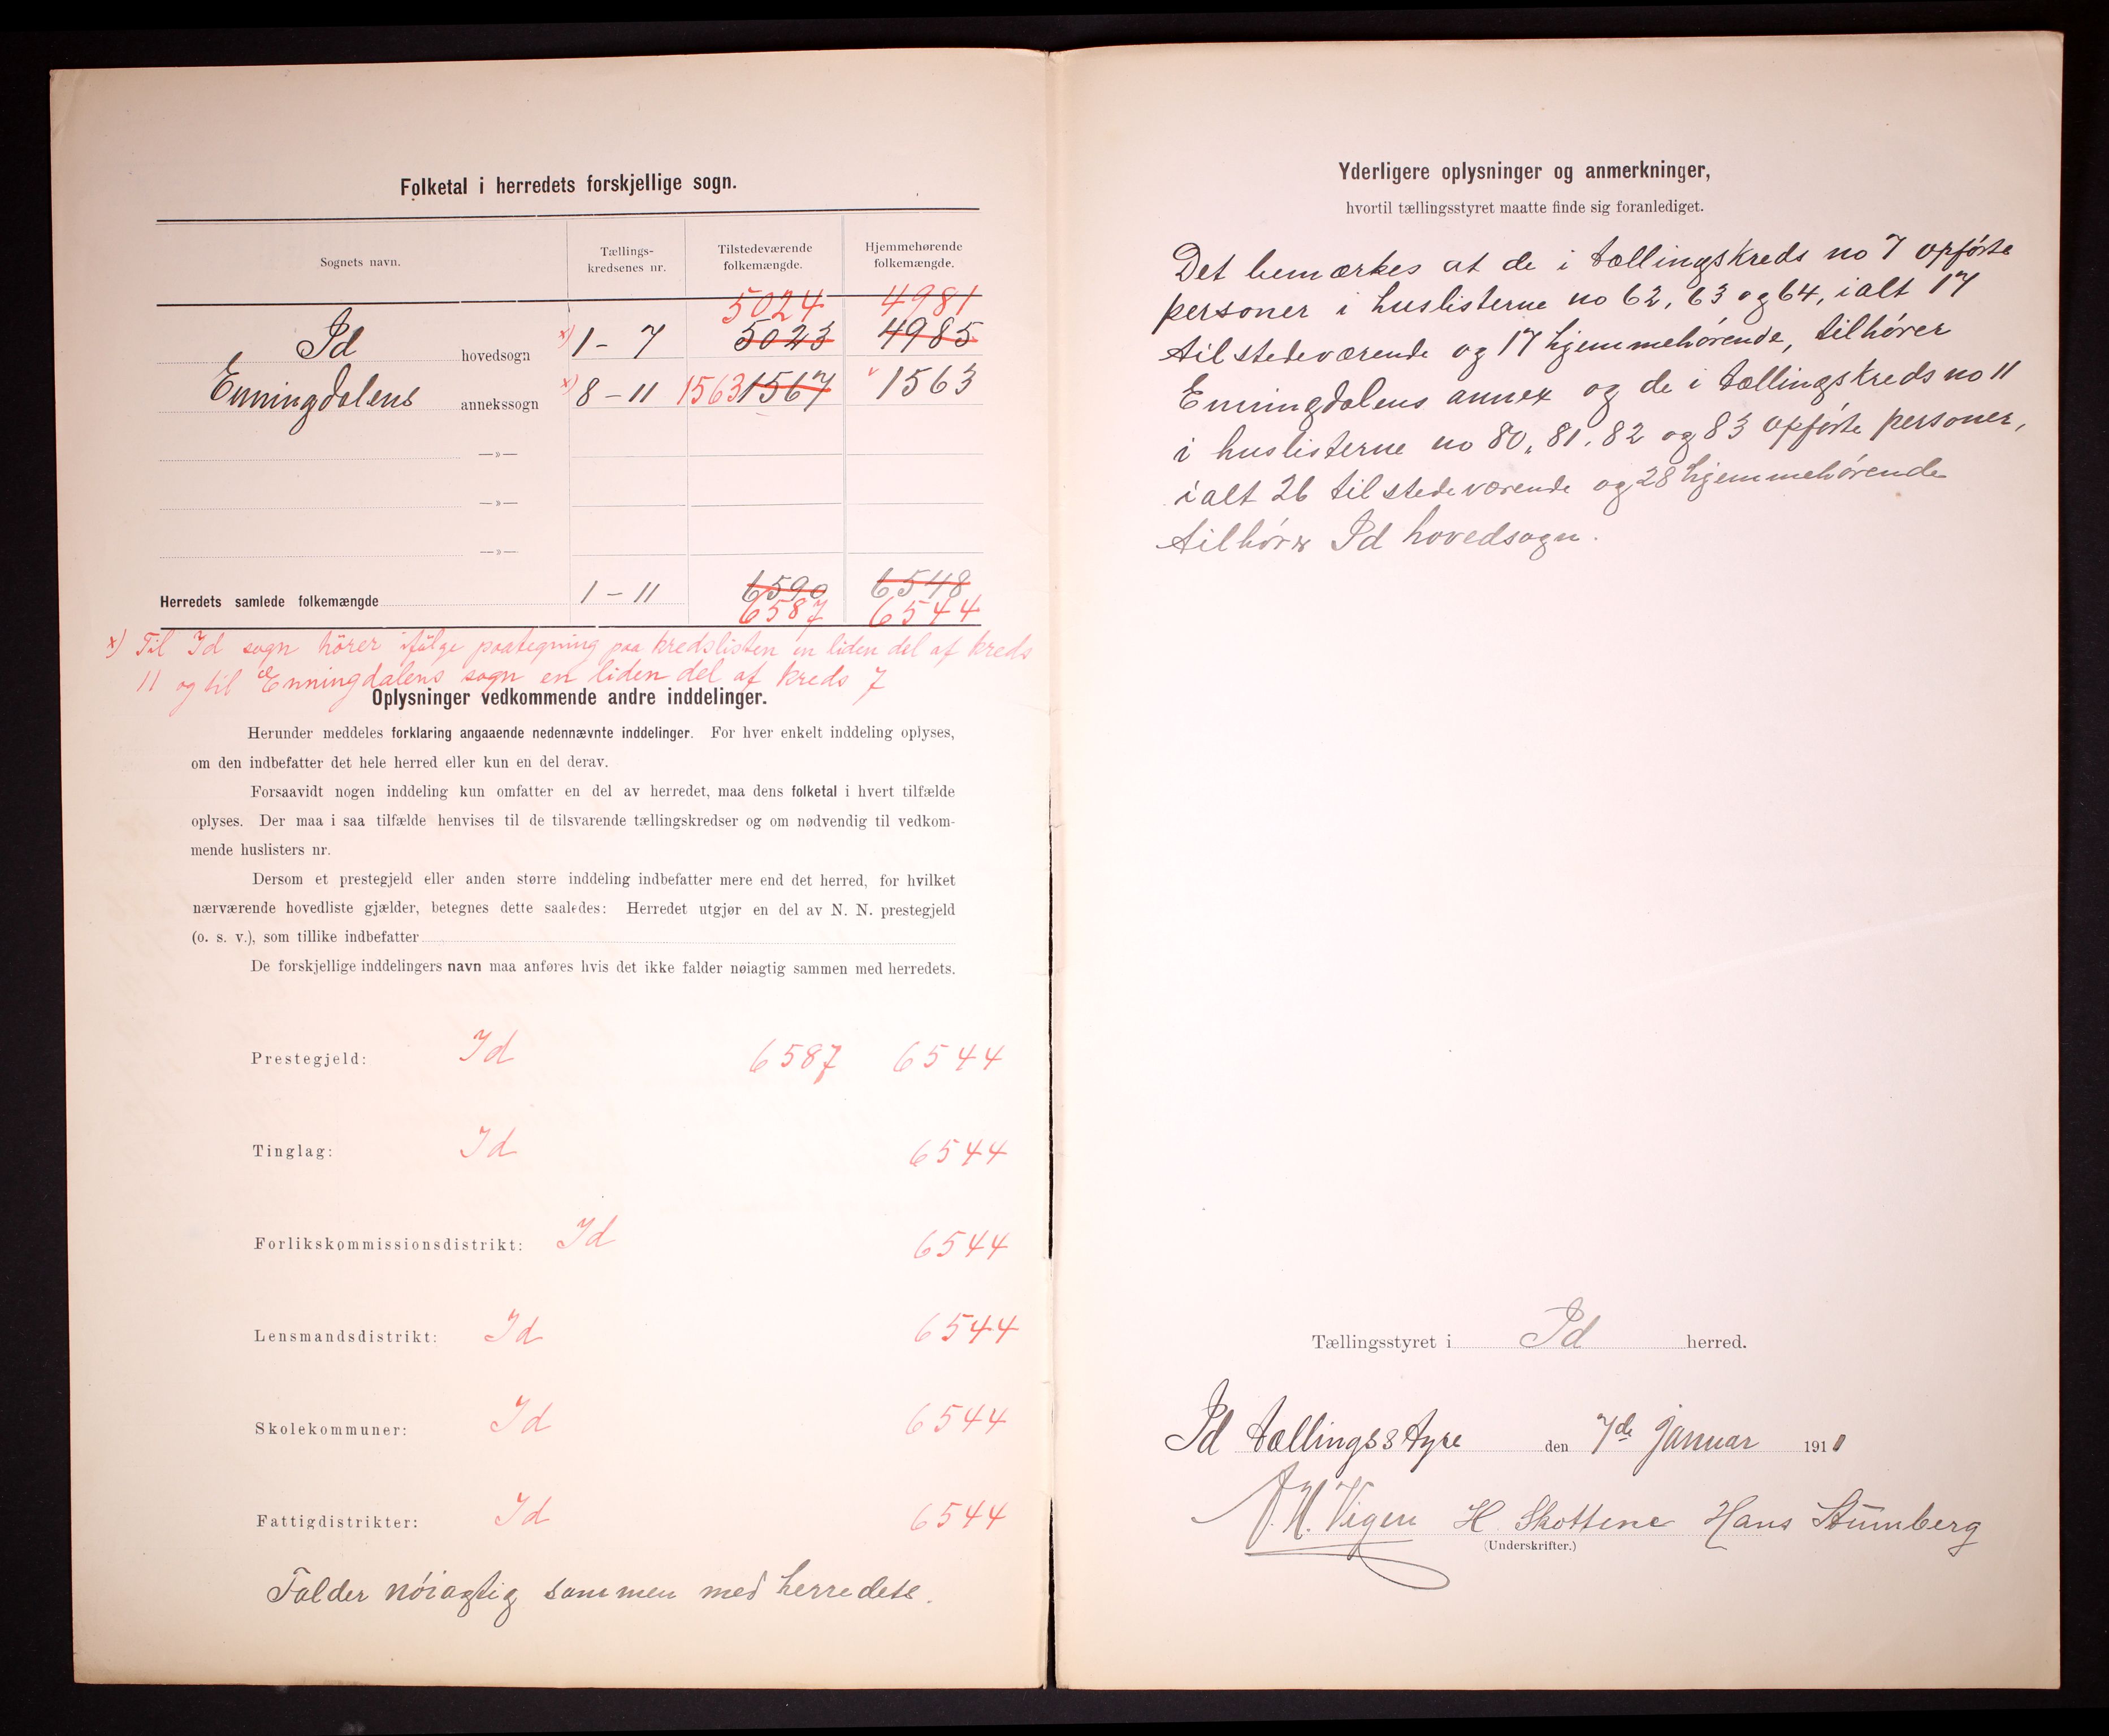 Folketal i herredets forskjellige sogn.
Sognets navn.
Tællings-
kredsenes nr.
Tilstedeværende
folkemængde.
Hjemmehørende
folkemængde.
5024 4981
Id hovedsogn x) 1 - 7 5023 4985
Enningdalens annekssogn x) 8 - 11 1563 1567 v 1563
—»—
—»—
—»—
Herredets samlede folkemængde 1 - 11 6590 6548
6587 6544
x) Til Id sogn hører ifølge paategning paa kredslisten en liden del af kreds
11 og til Enningdalens sogn en liden del af kreds 7
Oplysninger vedkommende andre inddelinger.
Herunder meddeles forklaring angaaende nedennævnte inddelinger. For hver enkelt inddeling oplyses,
om den indbefatter det hele herred eller kun en del derav.
Forsaavidt nogen inddeling kun omfatter en del av herredet, maa dens folketal i hvert tilfælde
oplyses. Der maa i saa tilfælde henvises til de tilsvarende tællingskredser og om nødvendig til vedkom-
mende huslisters nr.
Dersom et prestegjeld eller anden større inddeling indbefatter mere end det herred, for hvilket
nærværende hovedliste gjælder, betegnes dette saaledes: Herredet utgjør en del av N. N. prestegjeld
(o. s. v.), som tillike indbefatter
De forskjellige inddelingers navn maa anføres hvis det ikke falder nøiagtig sammen med herredets.
Prestegjeld: Id 6587 6544
Tinglag: Id 6544
Forlikskommissionsdistrikt: Id 6544
Lensmandsdistrikt: Id 6544
Skolekommuner: Id 6544
Fattigdistrikter: Id 6544
Falder nöiagtig sammen med herredets.
Yderligere oplysninger og anmerkninger,
hvortil tællingsstyret maatte finde sig foranlediget.
Det bemærkes at de i tællingskreds no 7 opförte
personer i huslisterne no 62, 63 og 64, ialt 17
tilstedeværende og 17 hjemmehörende, tilhörer
Enningdalens annex og de i tællingskreds no 11
i huslisterne no 80, 81, 82 og 83 opförte personer,
ialt 26 tilstedeværende og 28 hjemmehörende
tilhörer Id hovedsogn.
Tællingsstyret i Id herred.
Id tællingsstyre den 7de januar 1911
H. Skottene Hans Stumberg
(Underskrifter.)